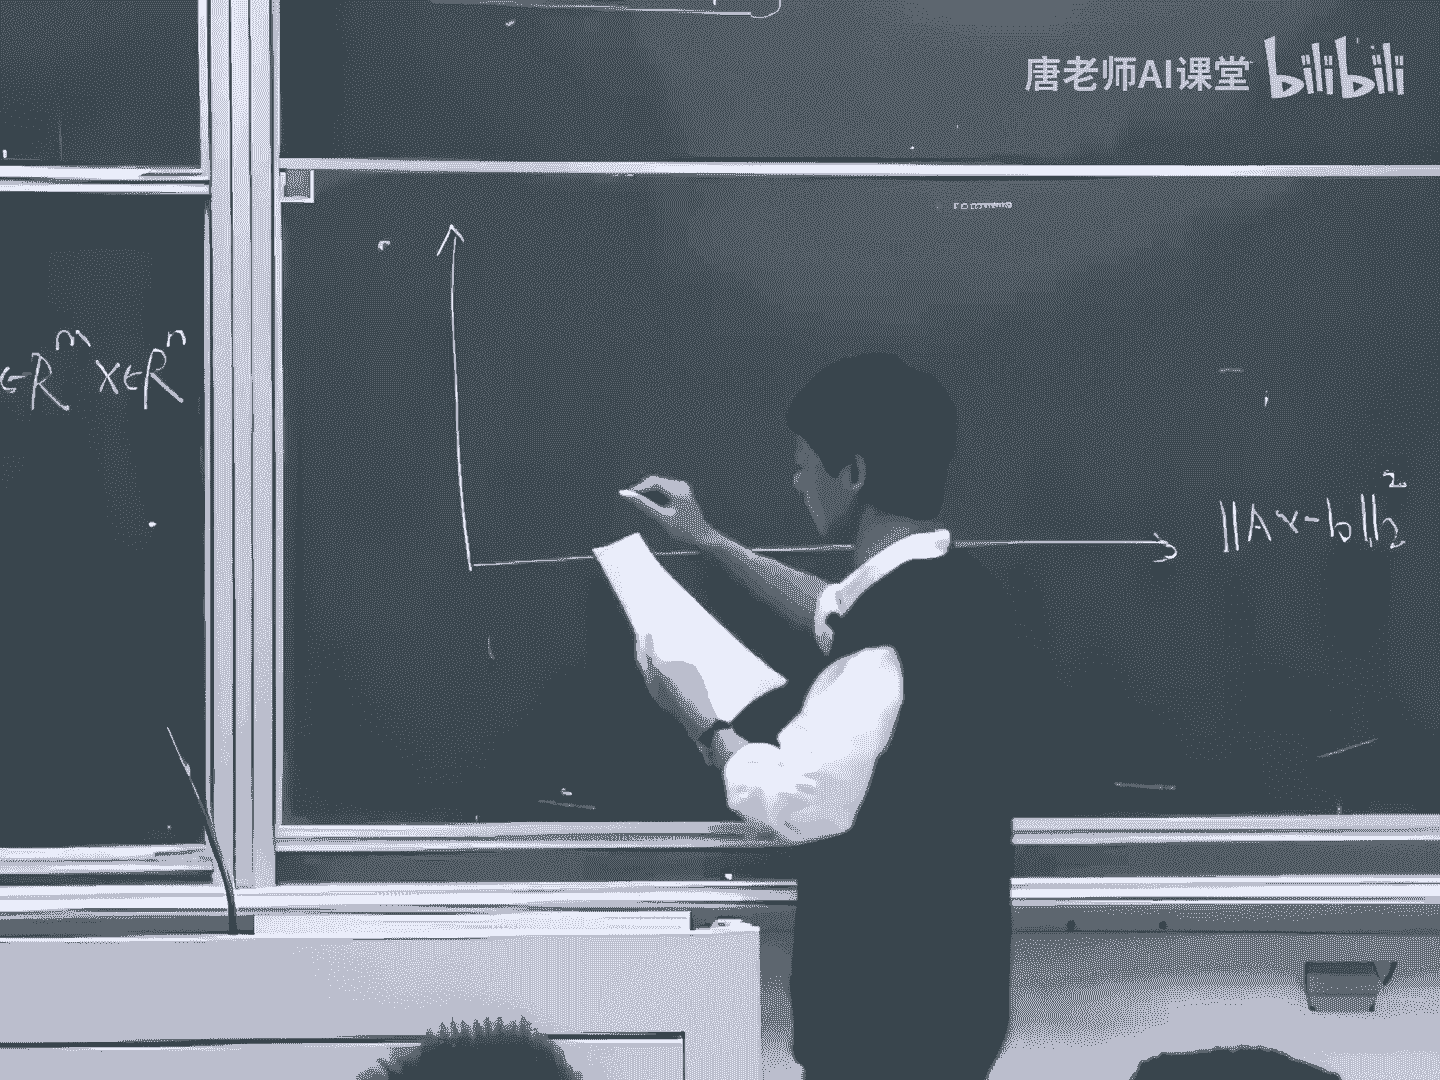 唐老师AI课堂 bilibili
∈R^m x∈R^n
||Ax-b||_2^2